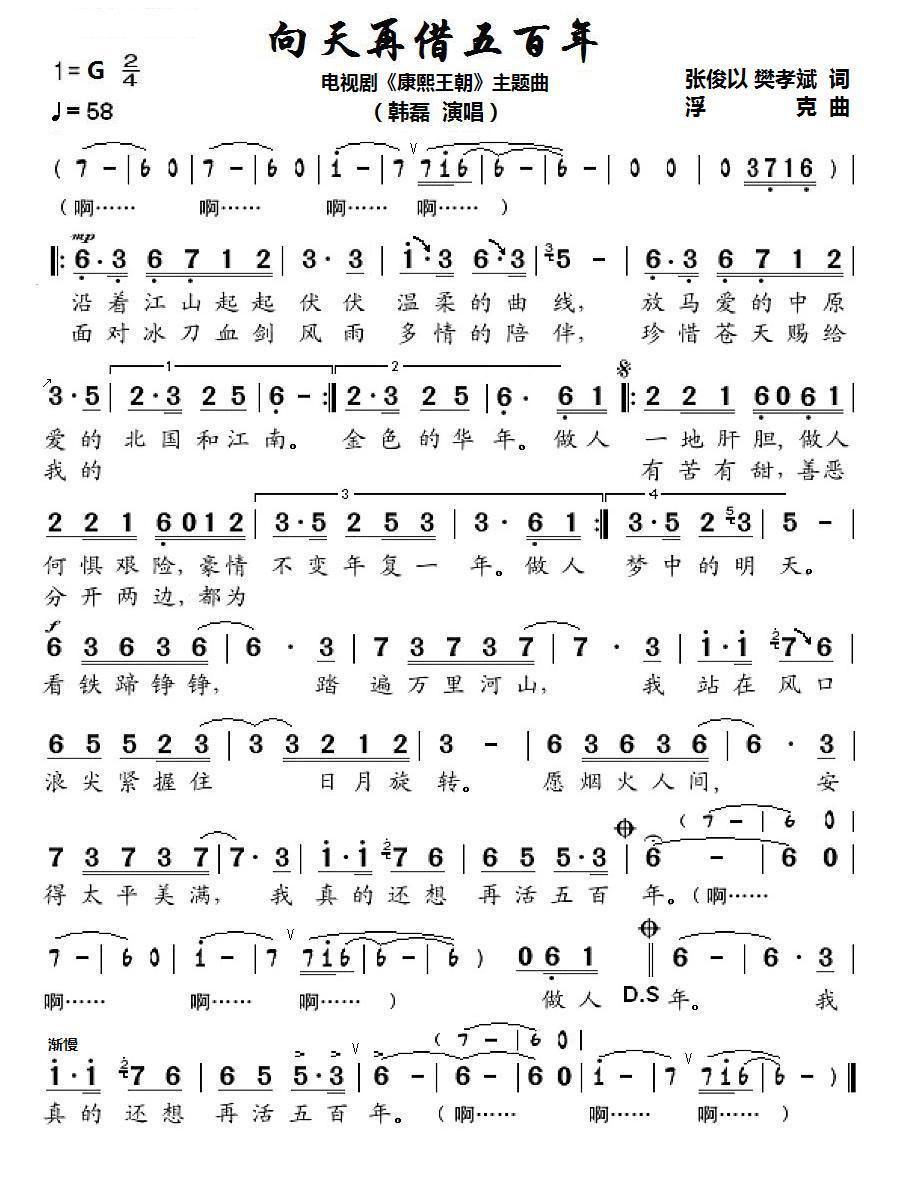 向天再借五百年
1=G 2/4
电视剧《康熙王朝》主题曲
张俊以 樊孝斌 词
♩=58
（韩磊 演唱）
浮 克 曲
( 7 - | 6 0 | 7 - | 6 0 | i - | 7 7i6 | 6 - | 6 - | 0 0 | 0 3716 ) |
（啊…… 啊…… 啊…… 啊……）
mp
‖: 6·3 6 7 1 2 | 3·3 | i·3 6·3 | 3 5 - | 6·3 6 7 1 2 |
沿着江山起起伏伏温柔的曲线， 放马爱的中原
面对冰刀血剑风雨多情的陪伴， 珍惜苍天赐给
1 2
3·5 | 2·3 2 5 | 6 - :‖ 2·3 2 5 | 6· 6 1 ‖: 2 2 1 6 0 6 1 |
爱的 北国和江南。 金色的华年。做人 一地肝胆，做人
我的 有苦有甜，善恶
3 4
2 2 1 6 0 1 2 | 3·5 2 5 3 | 3· 6 1 :‖ 3·5 2 5 3 | 5 - |
何惧艰险，豪情 不变年复一年。做人 梦中的明天。
分开两边，都为
f
6 3 6 3 6 | 6 · 3 | 7 3 7 3 7 | 7 · 3 | i·i 2 7 6 |
看铁蹄铮铮， 踏遍万里河山， 我站在风口
6 5 5 2 3 | 3 3 2 1 2 | 3 - | 6 3 6 3 6 | 6 · 3 |
浪尖紧握住 日月旋转。 愿烟火人间， 安
( 7 - | 6 0 |
7 3 7 3 7 | 7· 3 | i·i 2 7 6 | 6 5 5·3 | 6 - | 6 0 |
得太平美满， 我真的还想再活五百年。（啊……
7 - | 6 0 | i - | 7 7i6 | 6 - | 6 ) | 0 6 1 ‖ 6 - | 6 · 3 |
啊…… 啊…… 啊……） 做人 D.S 年。 我
渐慢 ( 7 - | 6 0 |
i·i 2 7 6 | 6 5 5·3 | 6 - | 6 - | 6 0 | i - | 7 7i6 | 6 - ) ‖
真的还想再活五百年。（啊…… 啊…… 啊……）